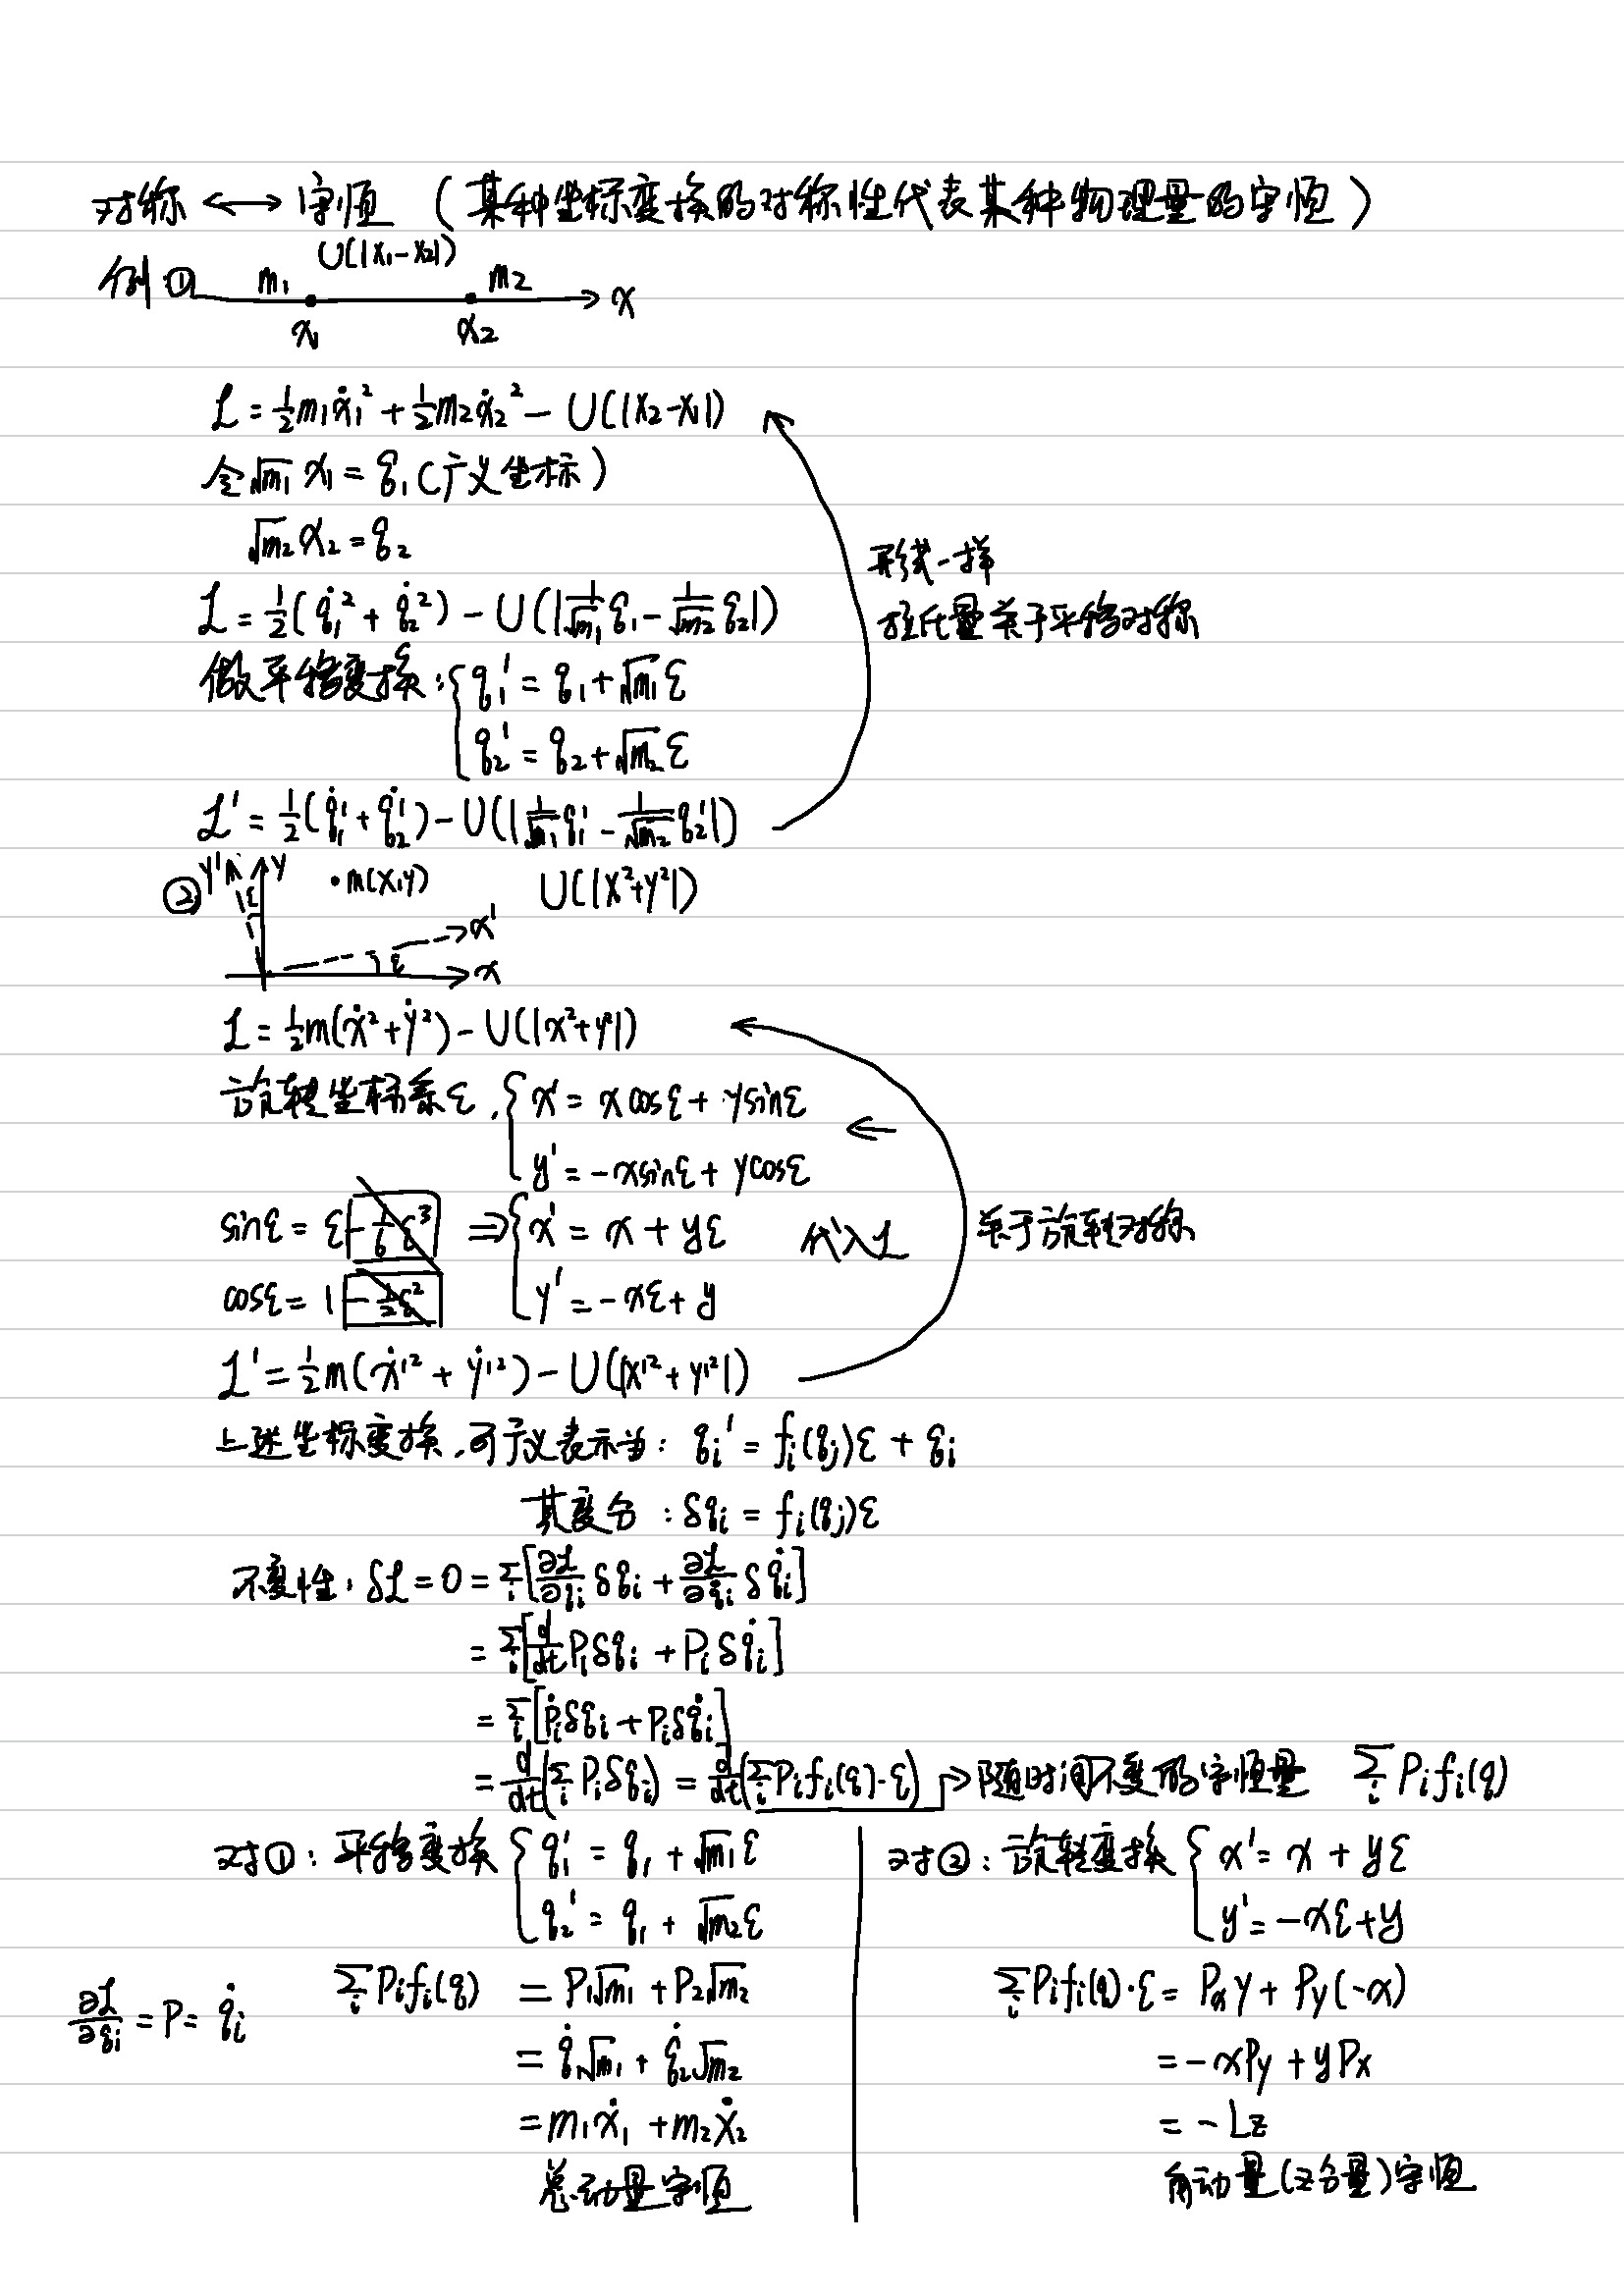 对称 ⟷ 守恒 (某种坐标变换的对称性代表某种物理量的守恒)
例① m₁ U(|x₁-x₂|) m₂ x
x₁ x₂
ℒ = ½m₁ẋ₁² + ½m₂ẋ₂² - U(|x₂-x₁|)
令√m₁ x₁ = q₁ (广义坐标)
√m₂ x₂ = q₂
形式一样
ℒ = ½(q̇₁² + q̇₂²) - U(|1/√m₁ q₁ - 1/√m₂ q₂|)
拉氏量关于平移对称
做平移变换: { q₁' = q₁ + √m₁ ε
q₂' = q₂ + √m₂ ε
ℒ' = ½(q̇₁' + q̇₂') - U(|1/√m₁ q₁' - 1/√m₂ q₂'|)
② y' ε y ·m(x,y) U(|x²+y²|)
x'
ε x
ℒ = ½m(ẋ²+ẏ²) - U(|x²+y²|)
旋转坐标系ε, { x' = x cosε + y sinε ←
y' = -x sinε + y cosε
sinε = ε - 1/6 ε³ ⇒ { x' = x + yε 代入ℒ 关于旋转对称
cosε = 1 - ½ε² y' = -xε + y
ℒ' = ½m(ẋ'² + ẏ'²) - U(|x'² + y'²|)
上述坐标变换,可广义表示为: qᵢ' = fᵢ(qⱼ)ε + qᵢ
其变分: δqᵢ = fᵢ(qⱼ)ε
不变性: δℒ = 0 = Σᵢ[∂ℒ/∂qᵢ δqᵢ + ∂ℒ/∂q̇ᵢ δq̇ᵢ]
= Σᵢ[d/dt Pᵢ δqᵢ + Pᵢ δq̇ᵢ]
= Σᵢ[Ṗᵢ δqᵢ + Pᵢ δq̇ᵢ]
= d/dt(Σᵢ Pᵢ δqᵢ) = d/dt(Σᵢ Pᵢ fᵢ(q)·ε) → 随时间不变的守恒量 Σᵢ Pᵢ fᵢ(q)
对①: 平移变换 { q₁' = q₁ + √m₁ ε
q₂' = q₁ + √m₂ ε
Σᵢ Pᵢ fᵢ(q) = P₁√m₁ + P₂√m₂
∂ℒ/∂qᵢ = P = q̇ᵢ
= q̇√m₁ + q̇₂√m₂
= m₁ẋ₁ + m₂ẋ₂
总动量守恒
对②: 旋转变换 { x' = x + yε
y' = -xε + y
Σᵢ Pᵢ fᵢ(q)·ε = Pₓ y + Py(-x)
= -xPy + yPx
= -Lz
角动量(z分量)守恒